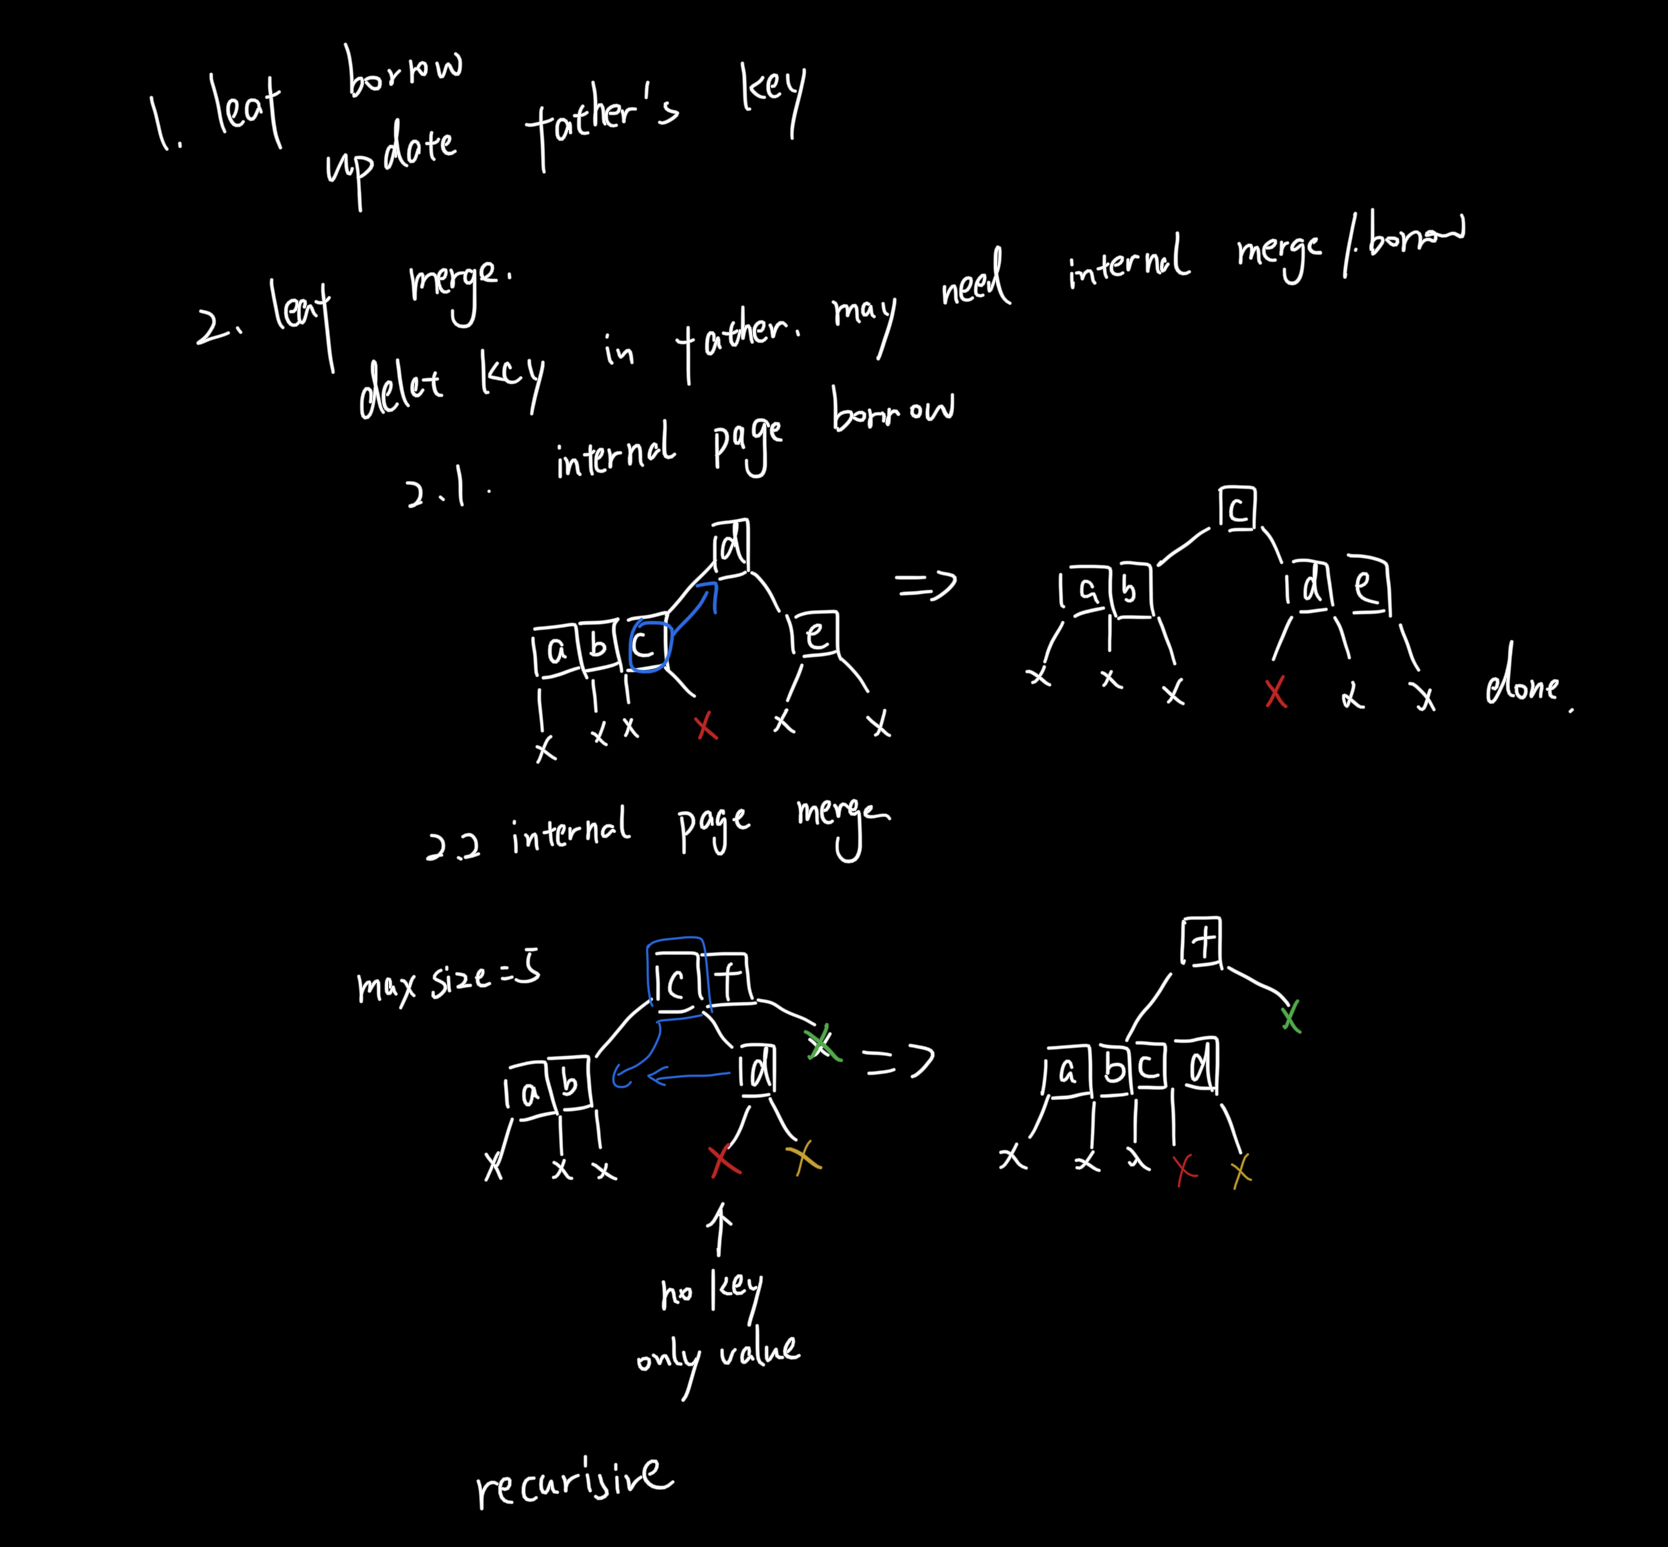 1. leaf borrow
update father's key
2. leaf merge.
delet key in father. may need internal merge / borrow
2.1. internal page borrow
d => c
a b c e a b d e
x x x x x x x x x x x x done.
2.2 internal page merge
max size = 5 c f => f
a b d x a b c d x
x x x x x x x x x x
↑
no key
only value
recurisive